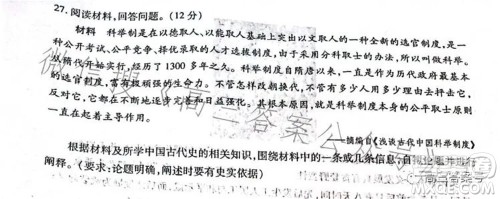 27. 阅读材料,回答问题。(12 分)
材料 科举制是在以德取人、以能取人基础上突出以文取人的一种全新的选官制度,是一
种公开考试、公平竞争、择优录取的人才选拔制度,由于采用分科取士的办法,所以叫做科举。
从隋代开始实行,经历了 1300 多年之久。科举制度自隋唐以来,一直是作为历代政府最基本
的选官制度,富有极顽强的生命力。不管怎样改朝换代,不管有多少人用多少理由去抨击它,
反对它,它都在不断地逐步完善和日益强化。其根本原因,就是科举制度本身的公平取士原则
一直在起着主导作用。
——摘编自《浅谈古代中国科举制度》
根据材料及所学中国古代史的相关知识,围绕材料中的一条或几条信息,自拟论题并进行
阐释。(要求:论题明确,阐述时要有史实依据)
微信搜《高三答案公众号》